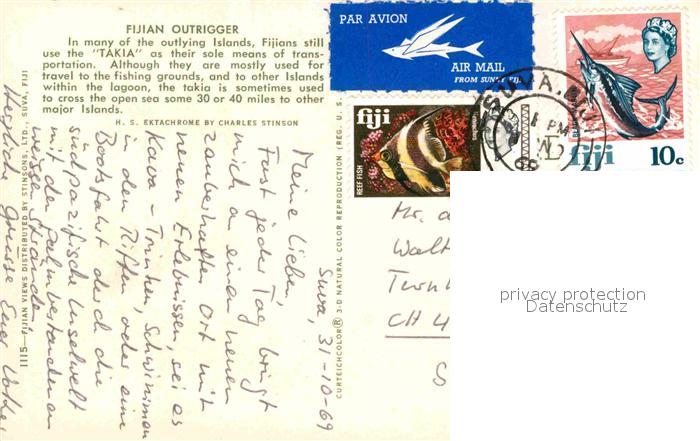 FIJIAN OUTRIGGER
In many of the outlying Islands, Fijians still
use the "TAKIA" as their sole means of trans-
portation. Although they are mostly used for
travel to the fishing grounds, and to other Islands
within the lagoon, the takia is sometimes used
to cross the open sea some 30 or 40 miles to other
major Islands.
H. S. EKTACHROME BY CHARLES STINSON
PAR AVION
AIR MAIL
FROM SUNNY FIJI
fiji
REEF FISH
fiji 10c
SUVA, FIJI
1 PM
FIJIAN VIEWS DISTRIBUTED BY STINSONS, LTD., SUVA, FIJI
CURTEICHCOLOR® 3-D NATURAL COLOR REPRODUCTION (REG. U.S.
Suva, 31-10-69
Meine Lieben,
Fast jeder Tag bringt
mich an einen neuen
zauberhaften Ort mit
neuen Erlebnissen, sei es
Kava-Trinken, Schwimmen
in den Riffen oder eine
Bootsfahrt durch die
südpazifische Inselwelt
mit den palmbestandenen
weissen Stränden.
Herzlich grüsse Euer
Mr.
Walt
Turn
CH 4
privacy protection
Datenschutz